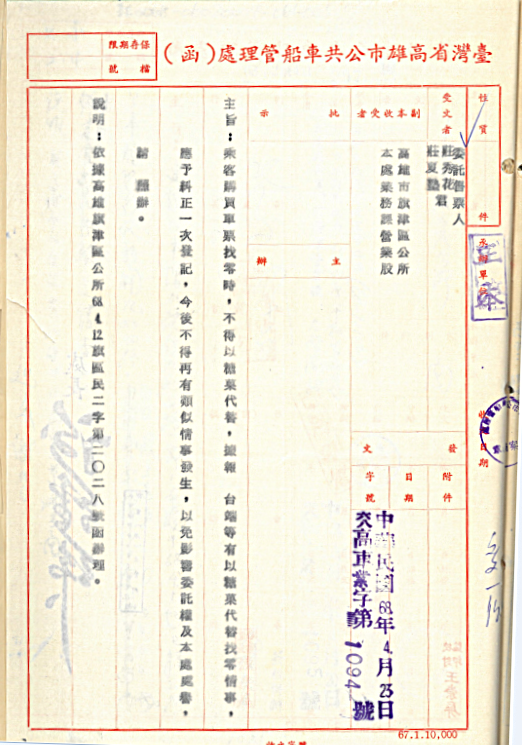 臺灣省高雄市公共車船管理處（函）
保存期限
檔號
性質
件
受文者
委託售票人
莊秀花
莊夏艷君
副本收受者
高雄市旗津區公所
本處業務課營業股
批示
主辦
承辦單位
正本
收
日期
發文
附件
日期
字號
中華民國68年4月23日
交高車業字第1094號
主旨：乘客購買車票找零時，不得以糖菓代替，據報　台端等有以糖菓代替找零情事，
應予糾正一次登記，今後不得再有類似情事發生，以免影響委託權及本處處譽，
請　照辦。
說明：依據高雄旗津區公所68.4.12旗區民二字第二〇二八號函辦理。
67.1.10,000